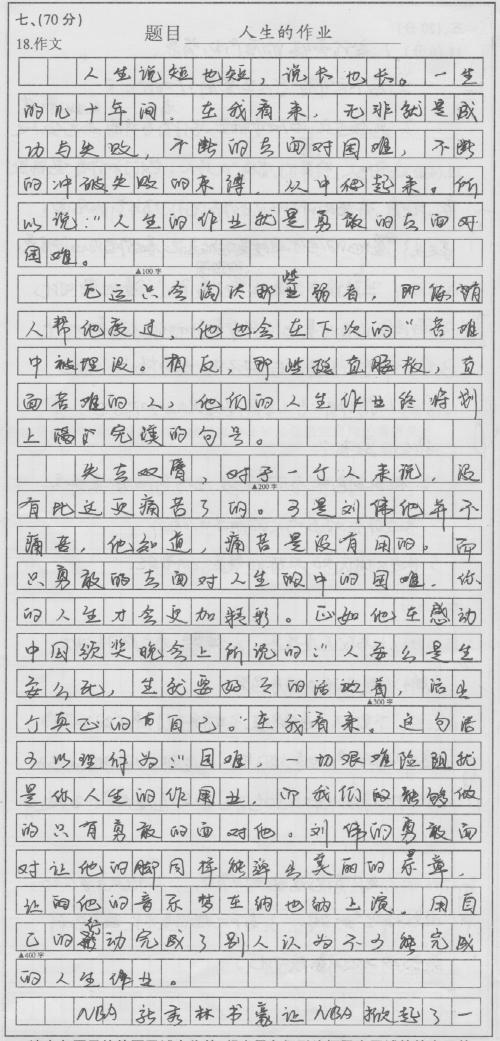 七、(70分)
题目 人生的作业
18.作文
人生说短也短，说长也长。一生
的几十年间，在我看来，无非就是成
功与失败，不断的去面对困难，不断
的冲破失败的束缚，从中爬起来。所
以说：“人生的作业就是勇敢的去面对
困难。
▲100字
厄运只会淘汰那些弱者，即便有
人帮他度过，他也会在下次的“苦难
中被埋没。相反，那些挺直腰板，直
面苦难的人，他们的人生作业终将划
上隔完满的句号。
失去双臂，对于一个人来说，没
▲200字
有比这更痛苦了的。可是刘伟他并不
痛苦，他知道，痛苦是没有用的。而
只勇敢的去面对人生的中的困难，你
的人生才会更加精彩。正如他在感动
中国颁奖晚会上所说的：“人要么是生
要么死，生就要好好的活地着，活出
▲300字
个真正的有自己。”在我看来。这句话
可以理解为：“困难，一切艰难险阻就
是你人生的作用业，而我们的能够做
的只有勇敢的面对他。刘伟的勇敢面
对让他的脚同样能弹出美丽的乐章，
让的他的音乐梦在纳也纳上演。用自
己的行动完成了别人认为不可能完成
▲400字
的人生作业。
NBA新秀林书豪让NBA掀起了一